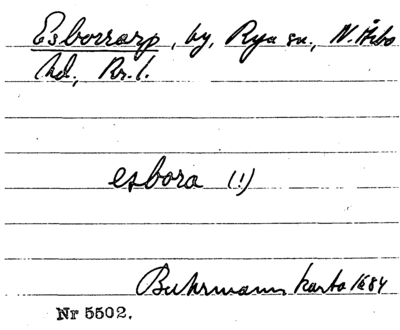 Esborrarp, by, Rya sn., N. Åsbo
hd., Kr. l.
esbora (!)
Buhrmanns karta 1684
Nr 5502.